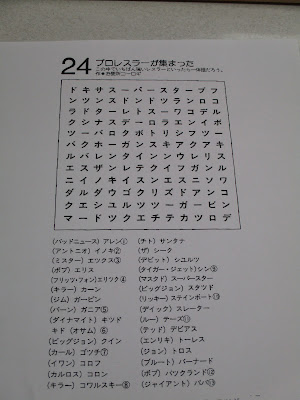 24 プロレスラーが集まった
この中でいちばん強いレスラーといったら一体誰だろう。
ドキサスーパースタープフ
ンツンスドンドツランロコ
ラドターレトスーワコデル
クシナスデーロラエンイボ
ツーバロクボトリシフツー
バクホーガンスキアクアキ
ルバレンタインンウレリス
エスザンレテクイフガンル
ニイノキイスンエスニソワ
ダルダウゴクリズドアンコ
クエシユルツツーガービン
マードツクエチテカツテロデ
(バッドニュース) アレン①
(アントニオ) イノキ②
(ミスター) エックス③
(ボブ) エリス
(フリッツ・フォン) エリック④
(キラー) カーン
(ジム) ガービン
(バーン) ガニア⑤
(ダイナマイト) キッド
キド (オサム) ⑥
(ビッグジョン) クイン
(カール) ゴッチ⑦
(イワン) コロフ
(カルロス) コロン
(キラー) コワルスキー⑧
(チト) サンタナ
(ザ) シーク
(デビット) シュルツ
(タイガー・ジェット) シン⑨
(マスクド) スーパースター
(ビッグジョン) スタッド
(リッキー) スティンボート⑩
(ディック) スレーター
(ルー) テーズ⑪
(テッド) デビアス
(エンリキ) トーレス
(ジョン) トロス
(ブルート) バーナード
(ボブ) バックランド⑫
(ジャイアント) ババ⑬